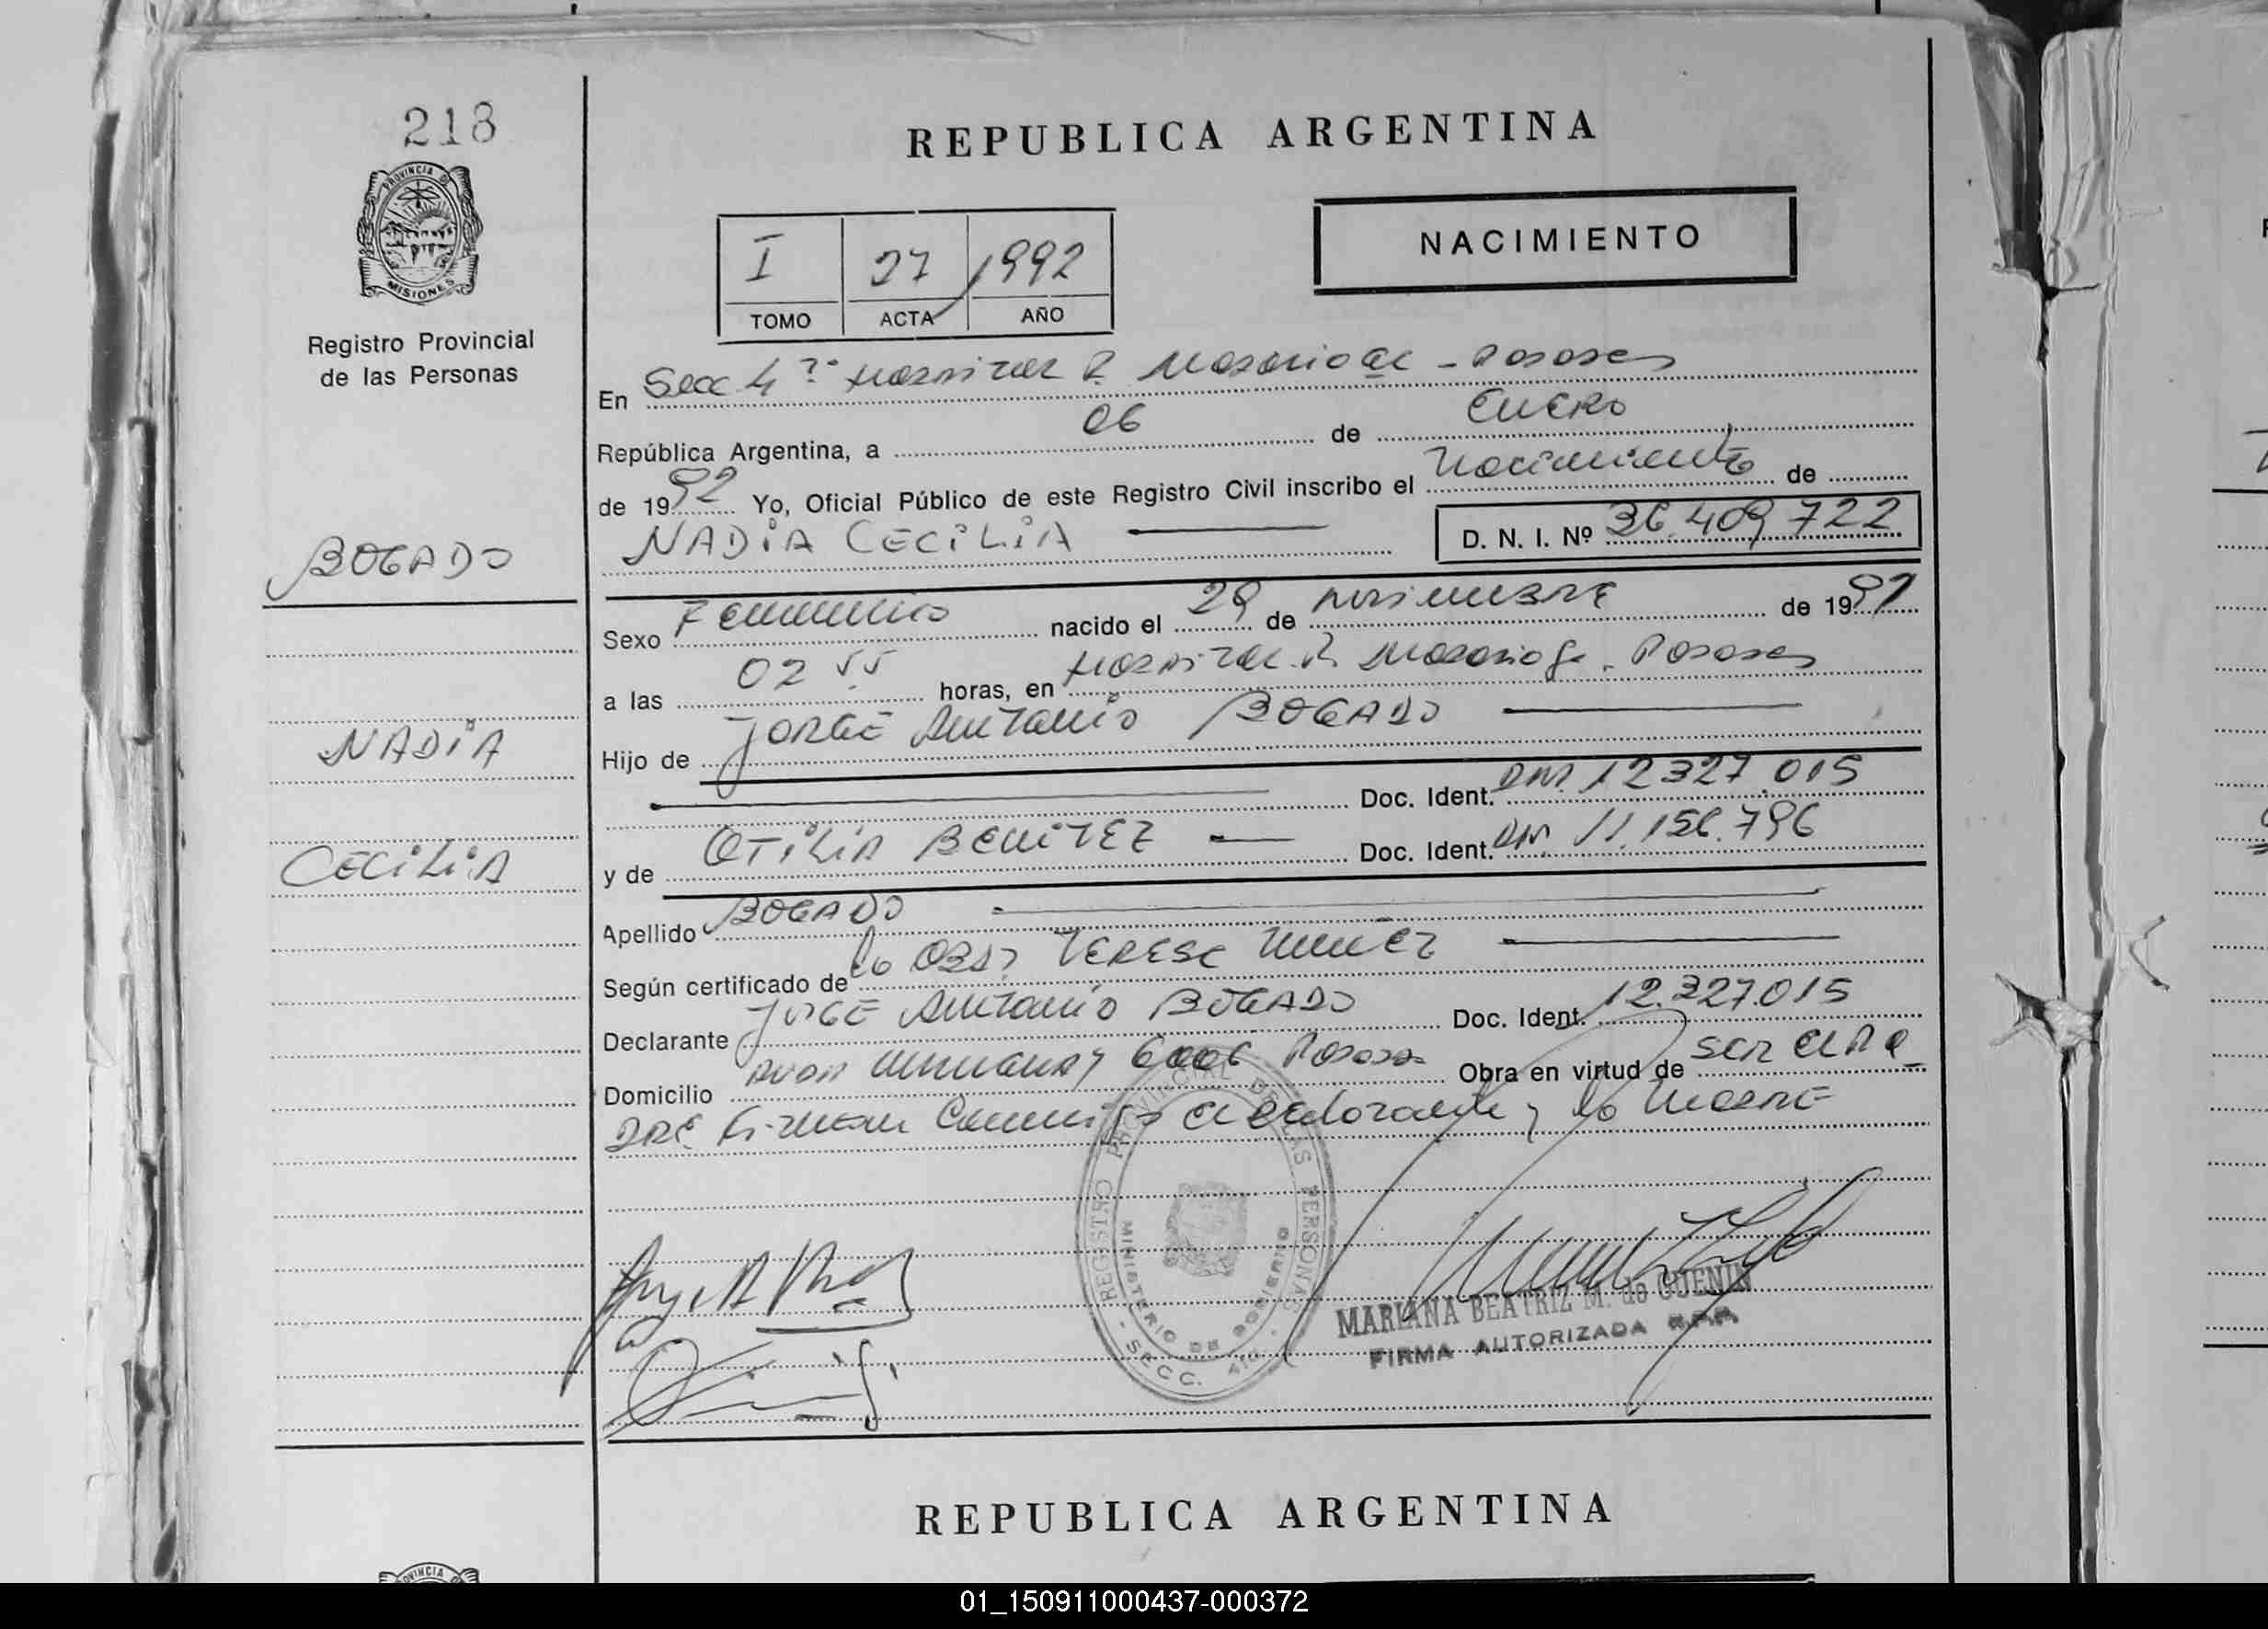 218
PROVINCIA DE
MISIONES
Registro Provincial
de las Personas
BOGADO
NADIA
CECILIA
REPUBLICA ARGENTINA
NACIMIENTO
I 27 1992
TOMO ACTA AÑO
En Secc 4ª Hospital R. Madariaga - Posadas
República Argentina, a 06 de Enero
de 1992 Yo, Oficial Público de este Registro Civil inscribo el Nacimiento de
NADIA CECILIA D. N. I. Nº 36.409.722
Sexo Femenino nacido el 29 de noviembre de 1991
a las 02 55 horas, en Hospital R. Madariaga. Posadas
Hijo de JORGE Antonio BOGADO
Doc. Ident. DNI. 12.327.015
y de OTILIA BENITEZ Doc. Ident. DNI. 11.156.796
Apellido BOGADO
Según certificado de la Obst TERESA
Declarante JORGE Antonio BOGADO Doc. Ident. 12.327.015
Domicilio Posadas Obra en virtud de ser el pa
dre Firman Conmigo el declarante y la madre
REGISTRO PROVINCIAL DE LAS PERSONAS
MINISTERIO DE GOBIERNO
SECC. 4ta.
MARIANA BEATRIZ M. de GUENIN
FIRMA AUTORIZADA R.P.P.
REPUBLICA ARGENTINA
01_150911000437-000372